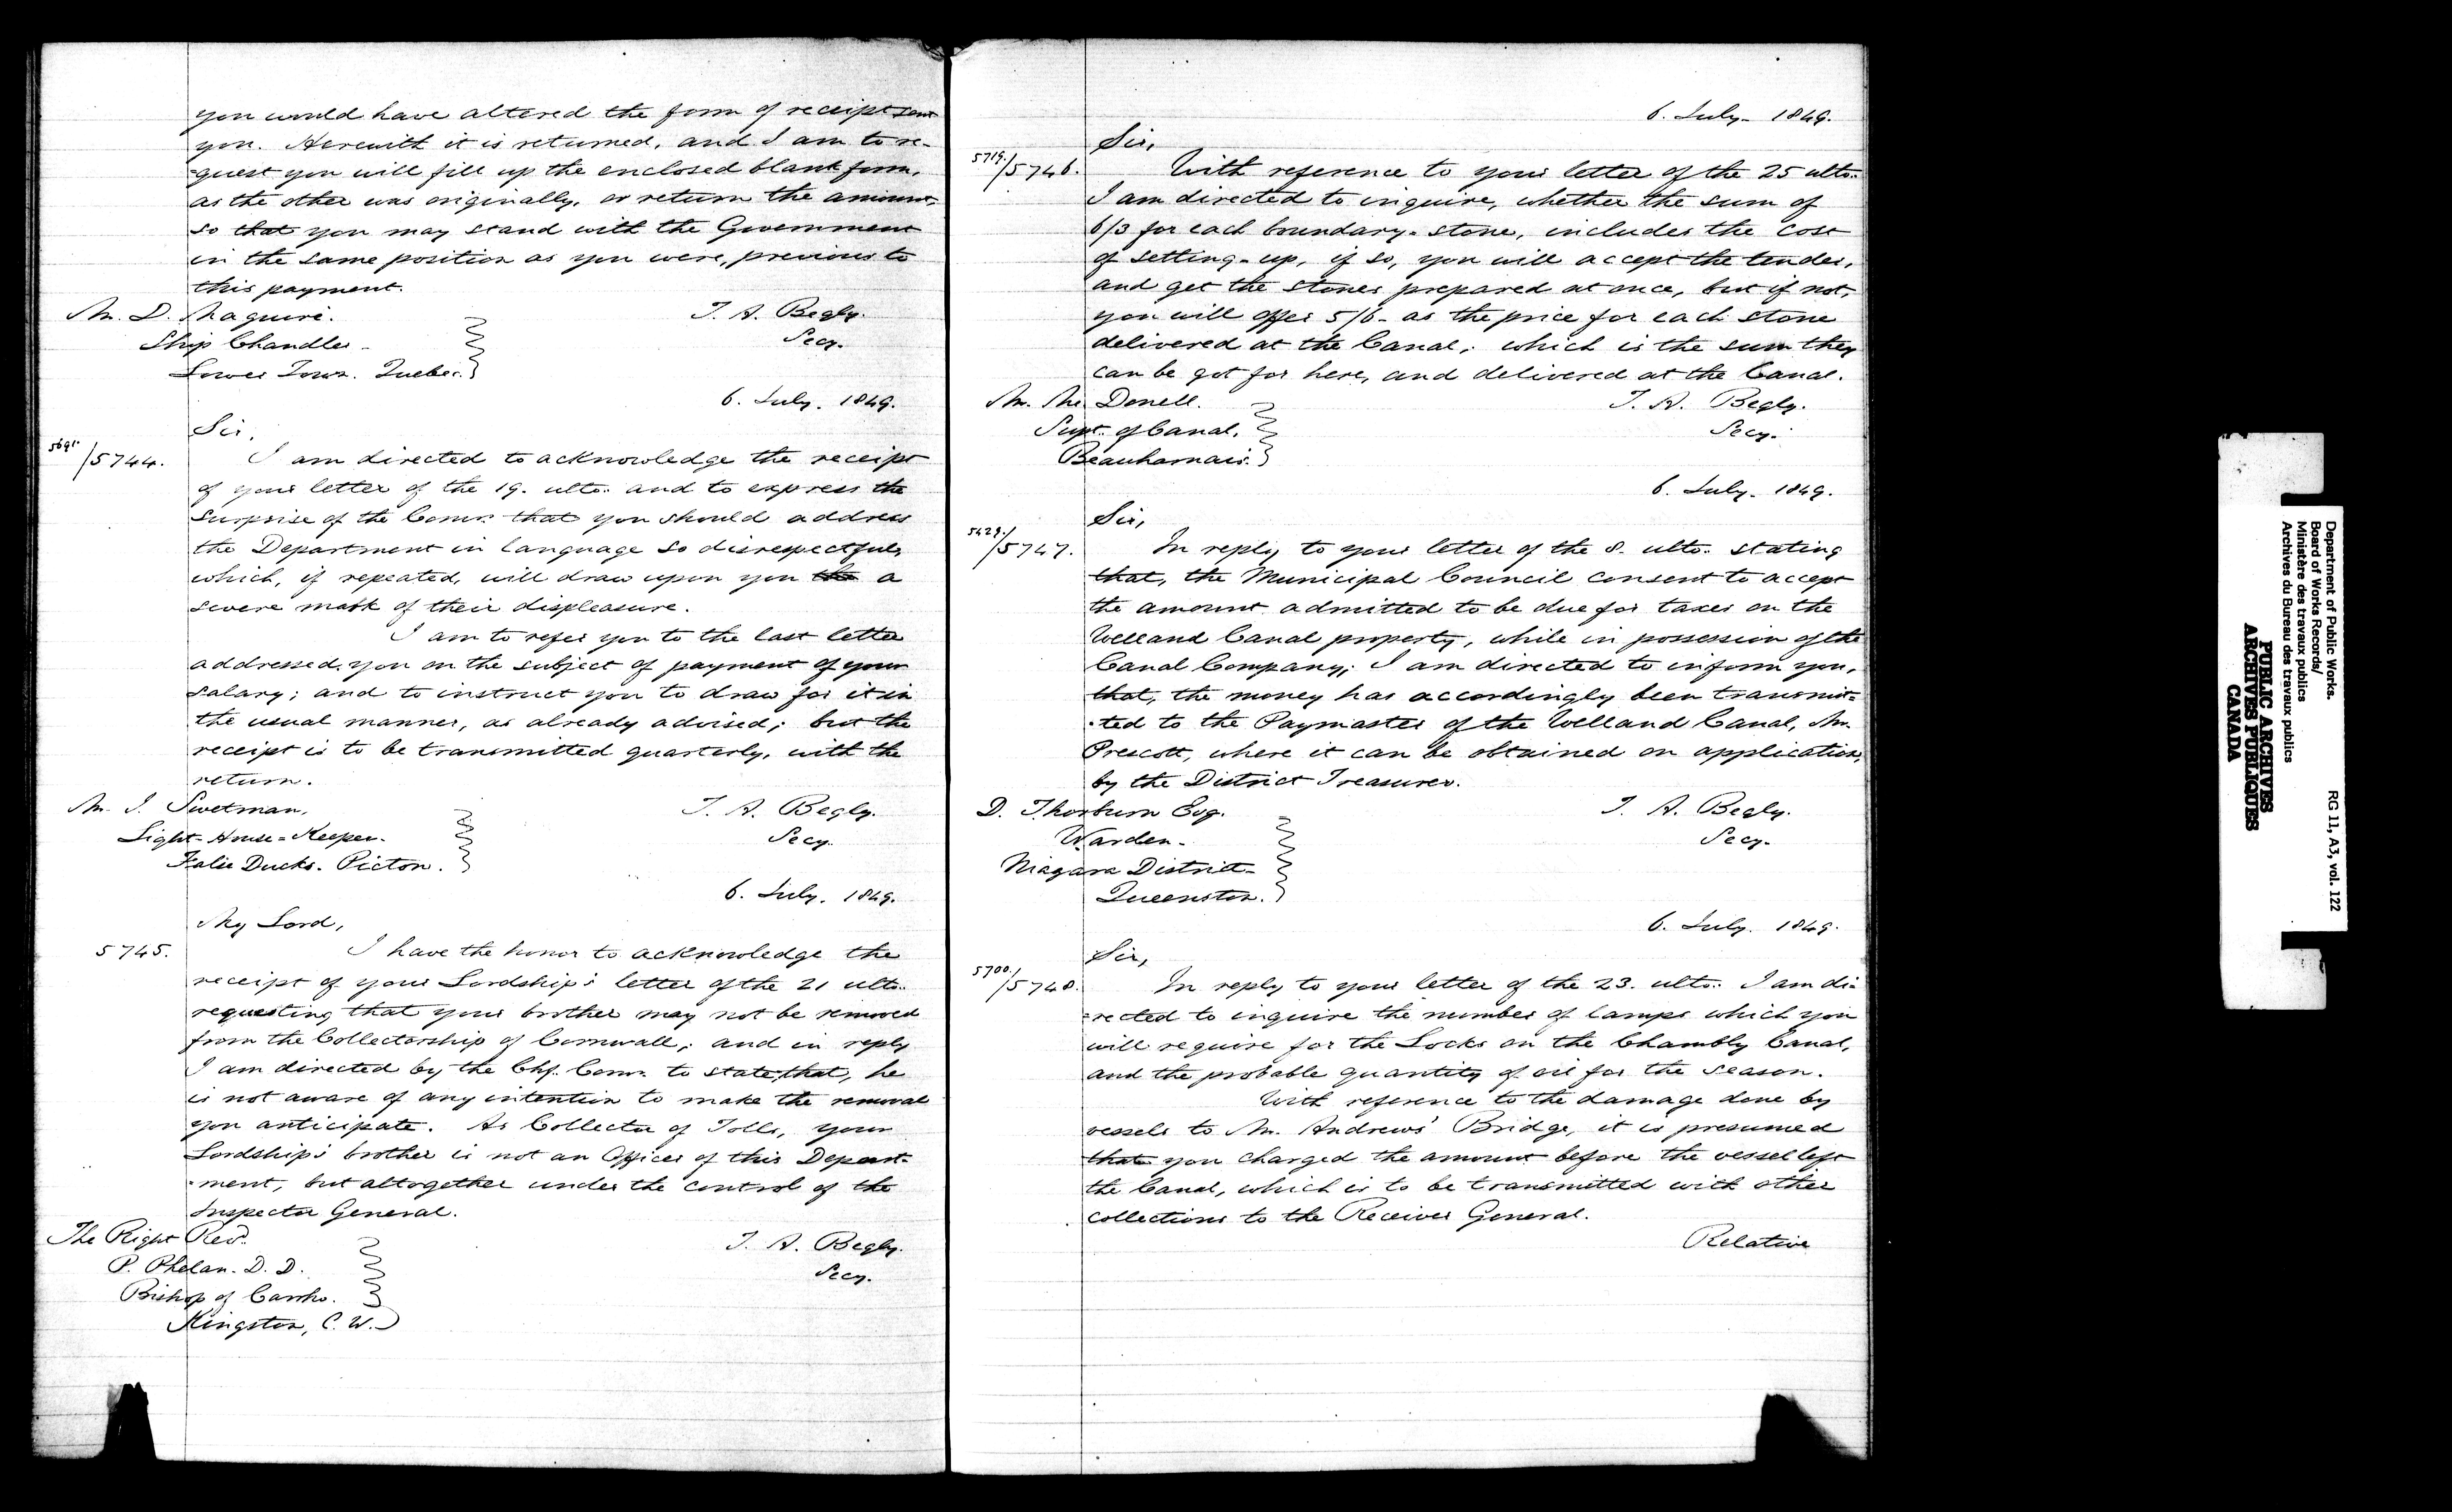 you would have altered the form of receipt sent
you. Herewith it is returned, and I am to re-
quest you will fill up the enclosed blank form,
as the other was originally, or return the amount,
so that you may stand with the Government
in the same position as you were, previous to
this payment.
Mr. D. Maguire.
Ship Chandler -
Lower Town. Quebec.
T. A. Begly.
Secy.
6. July. 1849.
Sir,
5691./5744.
I am directed to acknowledge the receipt
of your letter of the 19. ulto: and to express the
surprise of the Comr. that you should address
the Department in language so disrespectful,
which, if repeated, will draw upon you the a
severe mark of their displeasure.
I am to refer you to the last letter
addressed, you on the subject of payment of your
salary; and to instruct you to draw for it in
the usual manner, as already advised; but the
receipt is to be transmitted quarterly, with the
return.
Mr. J. Swetman,
Light-House-Keeper.
False Ducks. Picton.
T. A. Begly.
Secy.
6. July. 1849.
My Lord,
5745.
I have the honor to acknowledge the
receipt of your Lordship's letter of the 21 ulto:
requesting that your brother may not be removed
from the Collectorship of Cornwall; and in reply
I am directed by the Chf. Comr. to state, that, he
is not aware of any intention to make the removal
you anticipate. As Collector of Tolls, your
Lordship's brother is not an Officer of this Depart-
-ment, but altogether under the control of the
Inspector General.
The Right Revd.
P. Phelan. D. D.
Bishop of Carrho.
Kingston, C. W.
T. A. Begly.
Secy.
6. July. 1849.
Sir,
5719./5746.
With reference to your letter of the 25 ulto:
I am directed to inquire, whether the sum of
6/3 for each boundary-stone, includes the cost
of setting-up, if so, you will accept the tender,
and get the stones prepared at once, but if not,
you will offer 5/6- as the price for each stone
delivered at the Canal; which is the sum they
can be got for here, and delivered at the Canal.
Mr. Mc Donell.
Supt. of Canal,
Beauharnais.
T. A. Begly.
Secy.
6. July. 1849.
Sir,
5429./5747.
In reply to your letter of the 8. ulto: stating
that, the Municipal Council consent to accept
the amount admitted to be due for taxes on the
Welland Canal property, while in possession of the
Canal Company; I am directed to inform you,
that, the money has accordingly been transmit-
-ted to the Paymaster of the Welland Canal, Mr.
Prescott, where it can be obtained on application,
by the District Treasurer.
D. Thorburn Esq.
Warden.
Niagara District-
Queenston.
T. A. Begly.
Secy.
6. July. 1849.
Sir,
5700./5748.
In reply to your letter of the 23. ulto: I am di-
-rected to inquire the number of lamps which you
will require for the Locks on the Chambly Canal,
and the probable quantity of oil for the season.
With reference to the damage done by
vessels to Mr. Andrews' Bridge, it is presumed
that you charged the amount before the vessel left
the Canal, which is to be transmitted with other
collections to the Receiver General.
Relative
Department of Public Works.
Board of Works Records/
Ministère des travaux publics
Archives du Bureau des travaux publics
RG 11, A3, vol. 122
PUBLIC ARCHIVES
ARCHIVES PUBLIQUES
CANADA